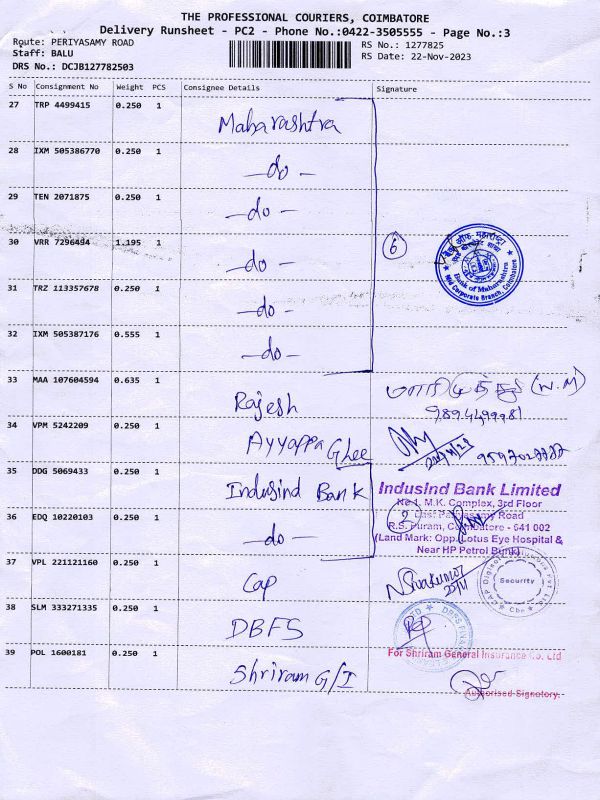 THE PROFESSIONAL COURIERS, COIMBATORE
Delivery Runsheet - PC2 - Phone No.:0422-3505555 - Page No.:3
Route: PERIYASAMY ROAD RS No.: 1277825
Staff: BALU RS Date: 22-Nov-2023
DRS No.: DCJB127782503
S No Consignment No Weight PCS Consignee Details Signature
27 TRP 4499415 0.250 1 Maharashtra
28 IXM 505386770 0.250 1 —do—
29 TEN 2071875 0.250 1 —do—
30 VRR 7296494 1.195 1 —do— 6
बैंक ऑफ महाराष्ट्र
Bank of Maharashtra
Mid Corporate Branch, Coimbatore
31 TRZ 113357678 0.250 1 —do—
32 IXM 505387176 0.555 1 —do—
33 MAA 107604594 0.635 1 Rajesh (W.M)
34 VPM 5242209 0.250 1 Ayyappa Ghee
35 DDG 5069433 0.250 1 Indusind Bank
IndusInd Bank Limited
No.1, M.K. Complex, 3rd Floor
Road
R.S. Puram, Coimbatore - 641 002
(Land Mark: Opp. Lotus Eye Hospital &
Near HP Petrol Bunk)
36 EDQ 10220103 0.250 1 —do— 2
37 VPL 221121160 0.250 1 Cap
Security
38 SLM 333271335 0.250 1 DBFS
39 POL 1600181 0.250 1 Shriram G/I
For Shriram General Insurance Co. Ltd
Authorised Signatory.